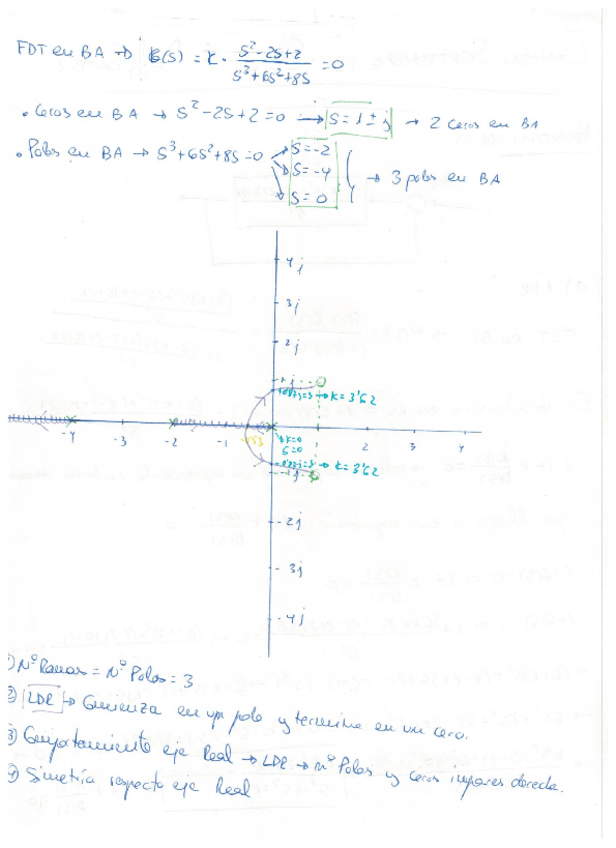 FDT en BA → G(s) = K · (s² - 2s + 2) / (s³ + 6s² + 8s) = 0
• Ceros en BA → s² - 2s + 2 = 0 → s = 1 ± j → 2 ceros en BA
• Polos en BA → s³ + 6s² + 8s = 0 → s = -2
→ s = -4 → 3 polos en BA
→ s = 0
4j
3j
2j
j
K = 3'62
-4 -3 -2 -1 1 2 3 4
K=0
K = 3'62
-j
-2j
-3j
-4j
1) Nº Ramas = Nº Polos = 3
2) LDR → Comienza en un polo y termina en un cero.
3) Comportamiento eje Real → LDR → nº Polos y ceros impares derecha.
4) Simetría respecto eje Real